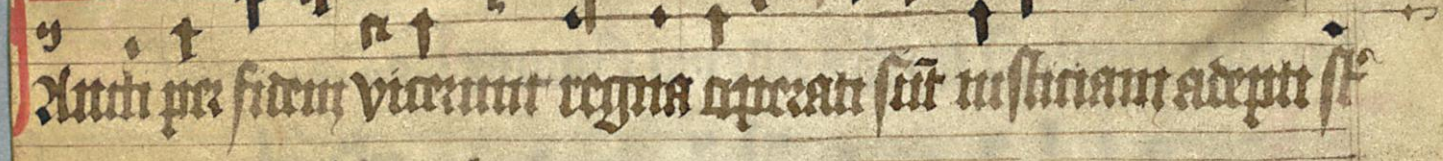 Ancti per fidem vicerunt regna operati sūt iusticiam adepti st̄